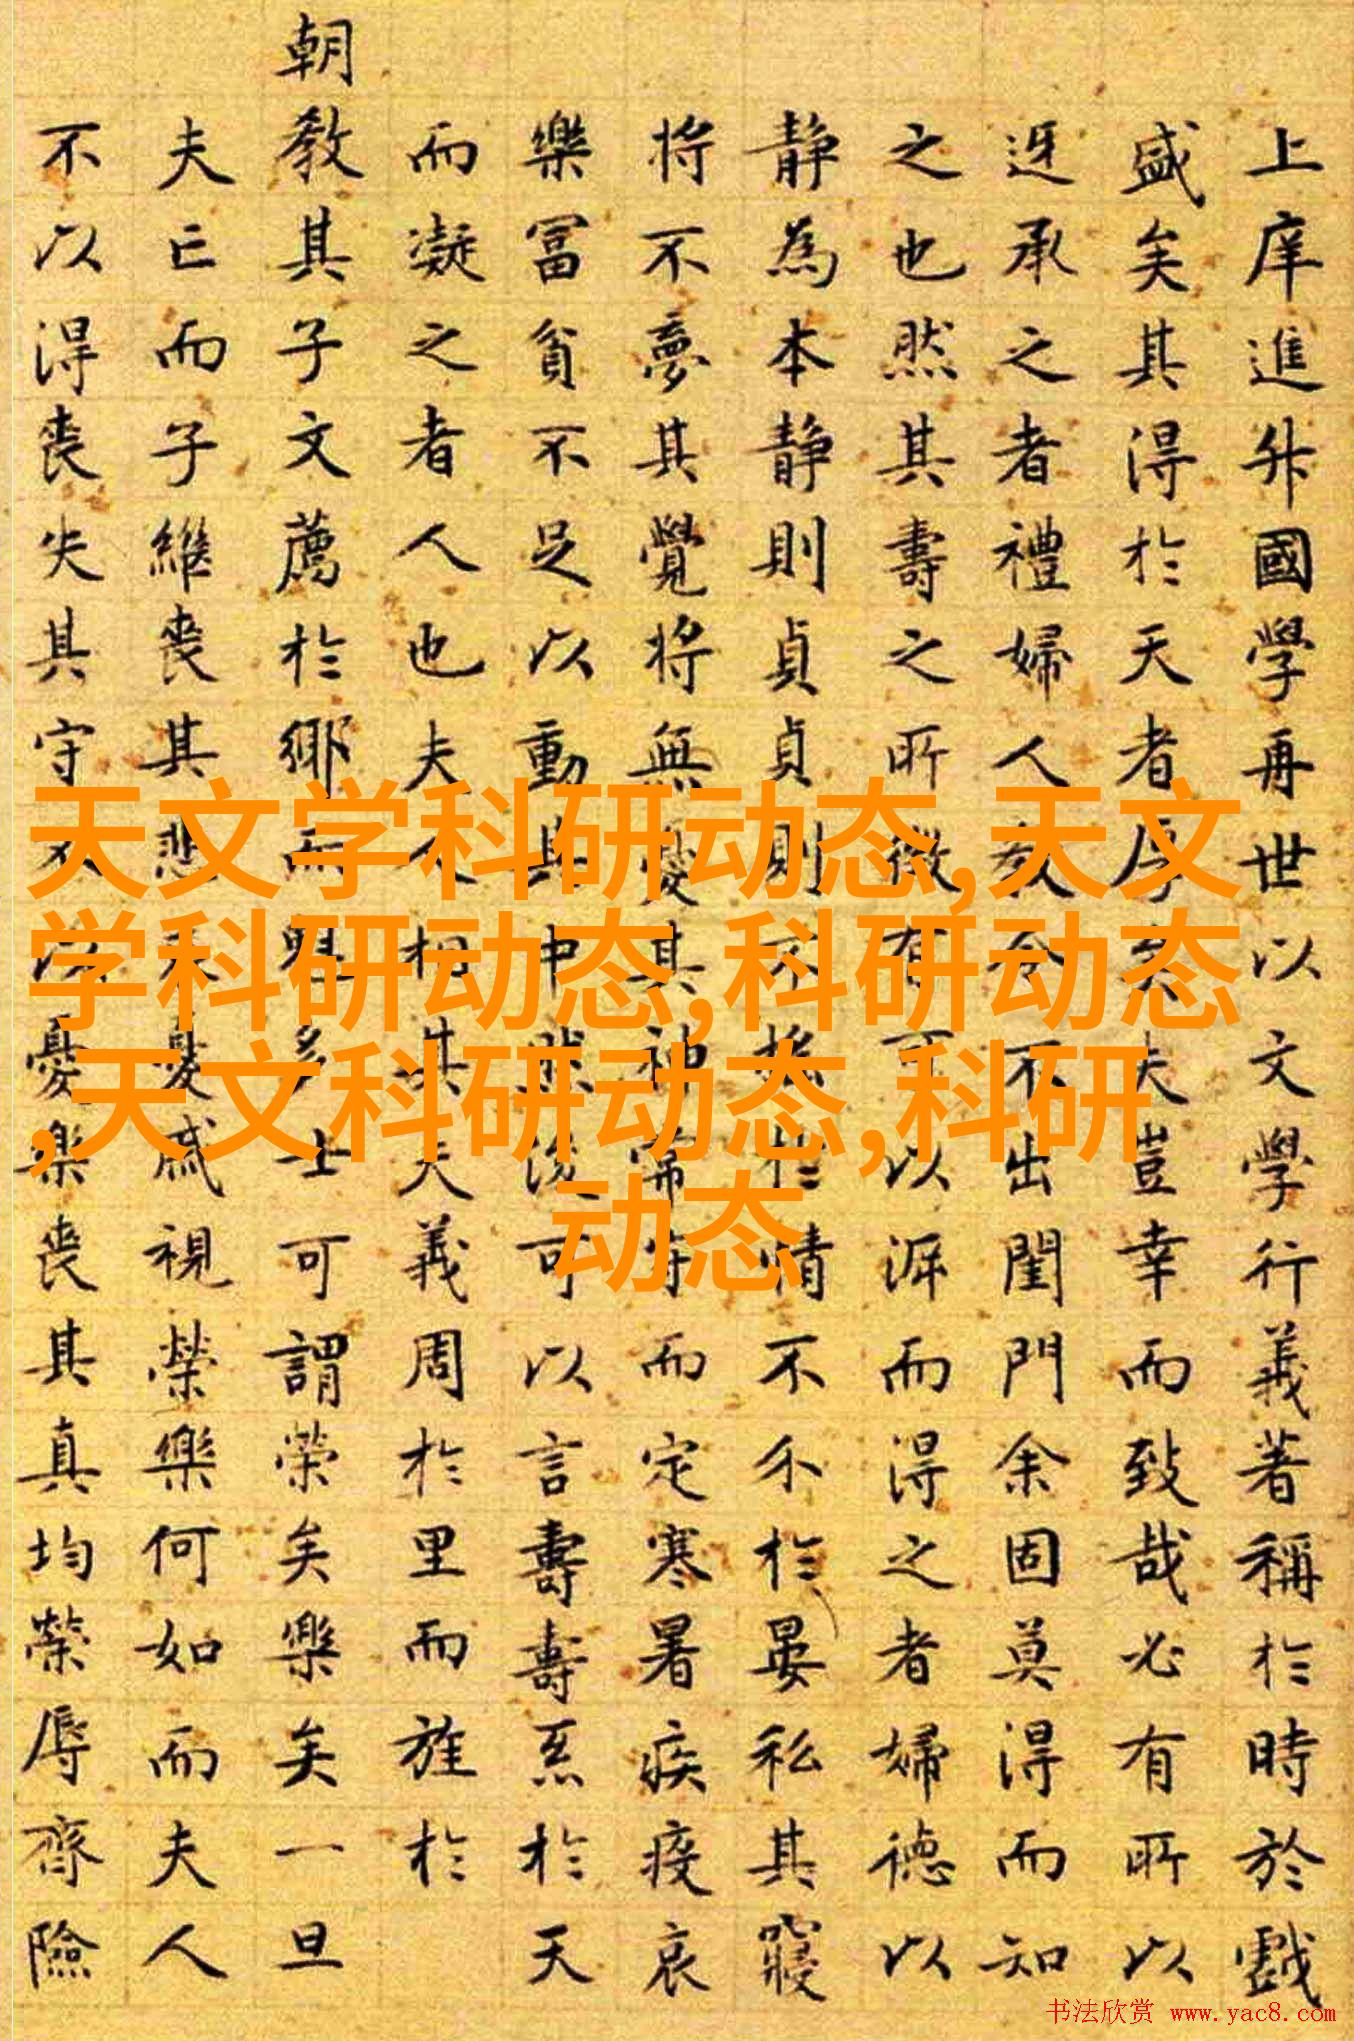 上庠進升國學再世以文學行義著稱於時於戲
盛矣其得於天者厚矣夫豈幸而致哉必有所以
迓承之者禮婦人教令不出閨門余固莫得而知
之也然其壽之所徵有可以涯而得之者婦德以
静為本静則貞貞則不撓於情不介於晏私其寢
将不夢其覺将無憂其神常守而定寒暑疾疫哀
樂冨貧不足以動其中然後可以言壽壽忝於天
而凝之者人也夫人相其夫義周於里而旌於
朝教其子文薦於鄉而魁多士可謂荣矣樂矣一旦
夫亡而子繼丧其悲哀憂戚視榮樂何如而夫人
不以得丧失其守不以憂樂丧其真均榮辱齊險
天文学科研动态,天文
学科研动态,科研动态
,天文科研动态,科研
动态
书法欣赏 www.yac8.com